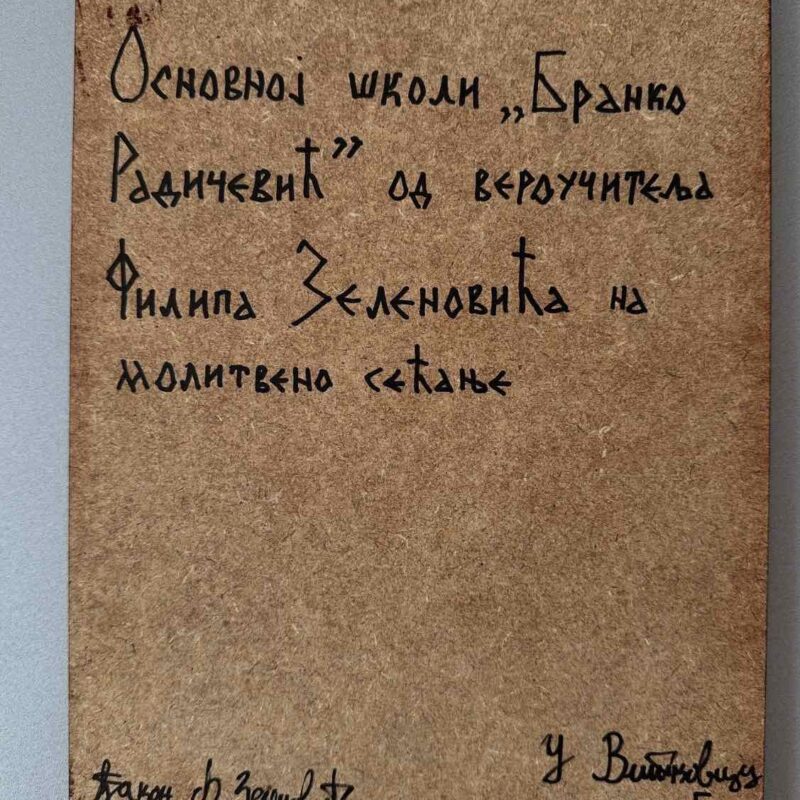 Основној школи „Бранко
Радичевић” од вероучитеља
Филипа Зеленовића на
молитвено сећање
У Витановцу
ђакон Ф